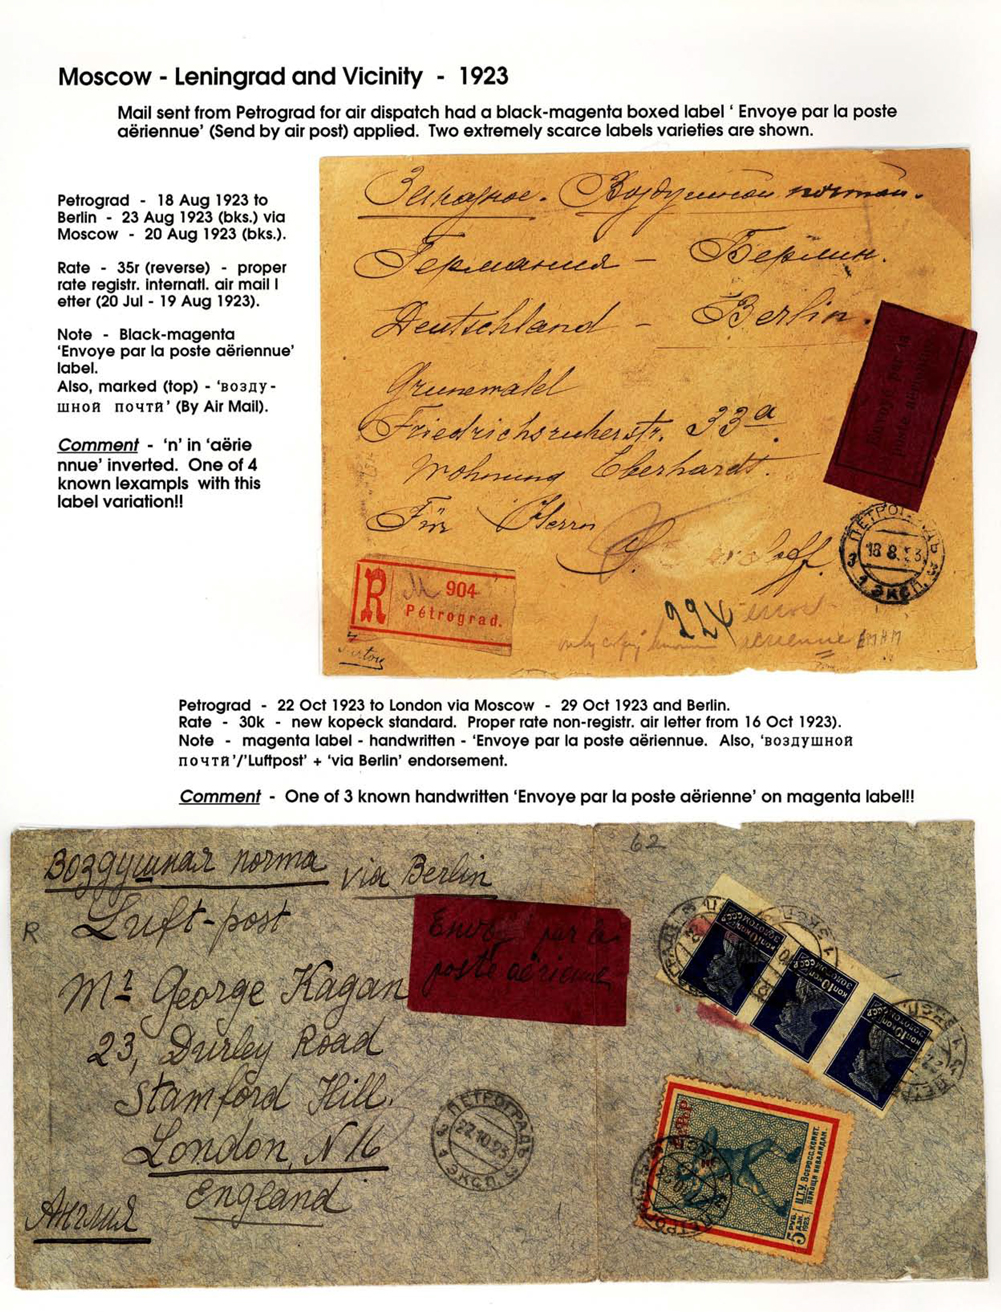 Moscow - Leningrad and Vicinity - 1923
Mail sent from Petrograd for air dispatch had a black-magenta boxed label ‘ Envoye par la poste
aëriennue’ (Send by air post) applied. Two extremely scarce labels varieties are shown.
Petrograd - 18 Aug 1923 to
Berlin - 23 Aug 1923 (bks.) via
Moscow - 20 Aug 1923 (bks.).
Rate - 35r (reverse) - proper
rate registr. internatl. air mail l
etter (20 Jul - 19 Aug 1923).
Note - Black-magenta
‘Envoye par la poste aëriennue’
label.
Also, marked (top) - ‘возду-
шной почтй’ (By Air Mail).
Comment - ‘n’ in ‘aërie
nnue’ inverted. One of 4
known lexampls with this
label variation!!
Заказное. Воздушной почтой.
Германия - Берлин.
Deutschland - Berlin.
Grunewald
Friedrichsruherstr. 33a.
Wohnung Eberhardt.
Für Herrn
R 904
Pétrograd.
ПЕТРОГРАДЪ
18 8 23
224
Petrograd - 22 Oct 1923 to London via Moscow - 29 Oct 1923 and Berlin.
Rate - 30k - new kopeck standard. Proper rate non-registr. air letter from 16 Oct 1923).
Note - magenta label - handwritten - ‘Envoye par la poste aëriennue. Also, ‘воздушной
почтя’/‘Luftpost’ + ‘via Berlin’ endorsement.
Comment - One of 3 known handwritten ‘Envoye par la poste aërienne’ on magenta label!!
62
Воздушная почта via Berlin
Luft-post
R
Envoyé par la
poste aérienne
Mr George Kagan
23, Durley Road
Stamford Hill.
London, N 16
England
Англия
ПЕТРОГРАДЪ
22.10.23